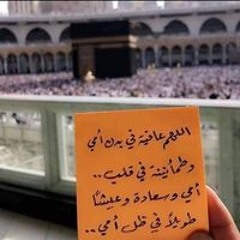 اللهم عافية في بدن أمي
وطمأنينة في قلب..
أمي وسعادة وعيشًا
طويلًا في ظل أمي..